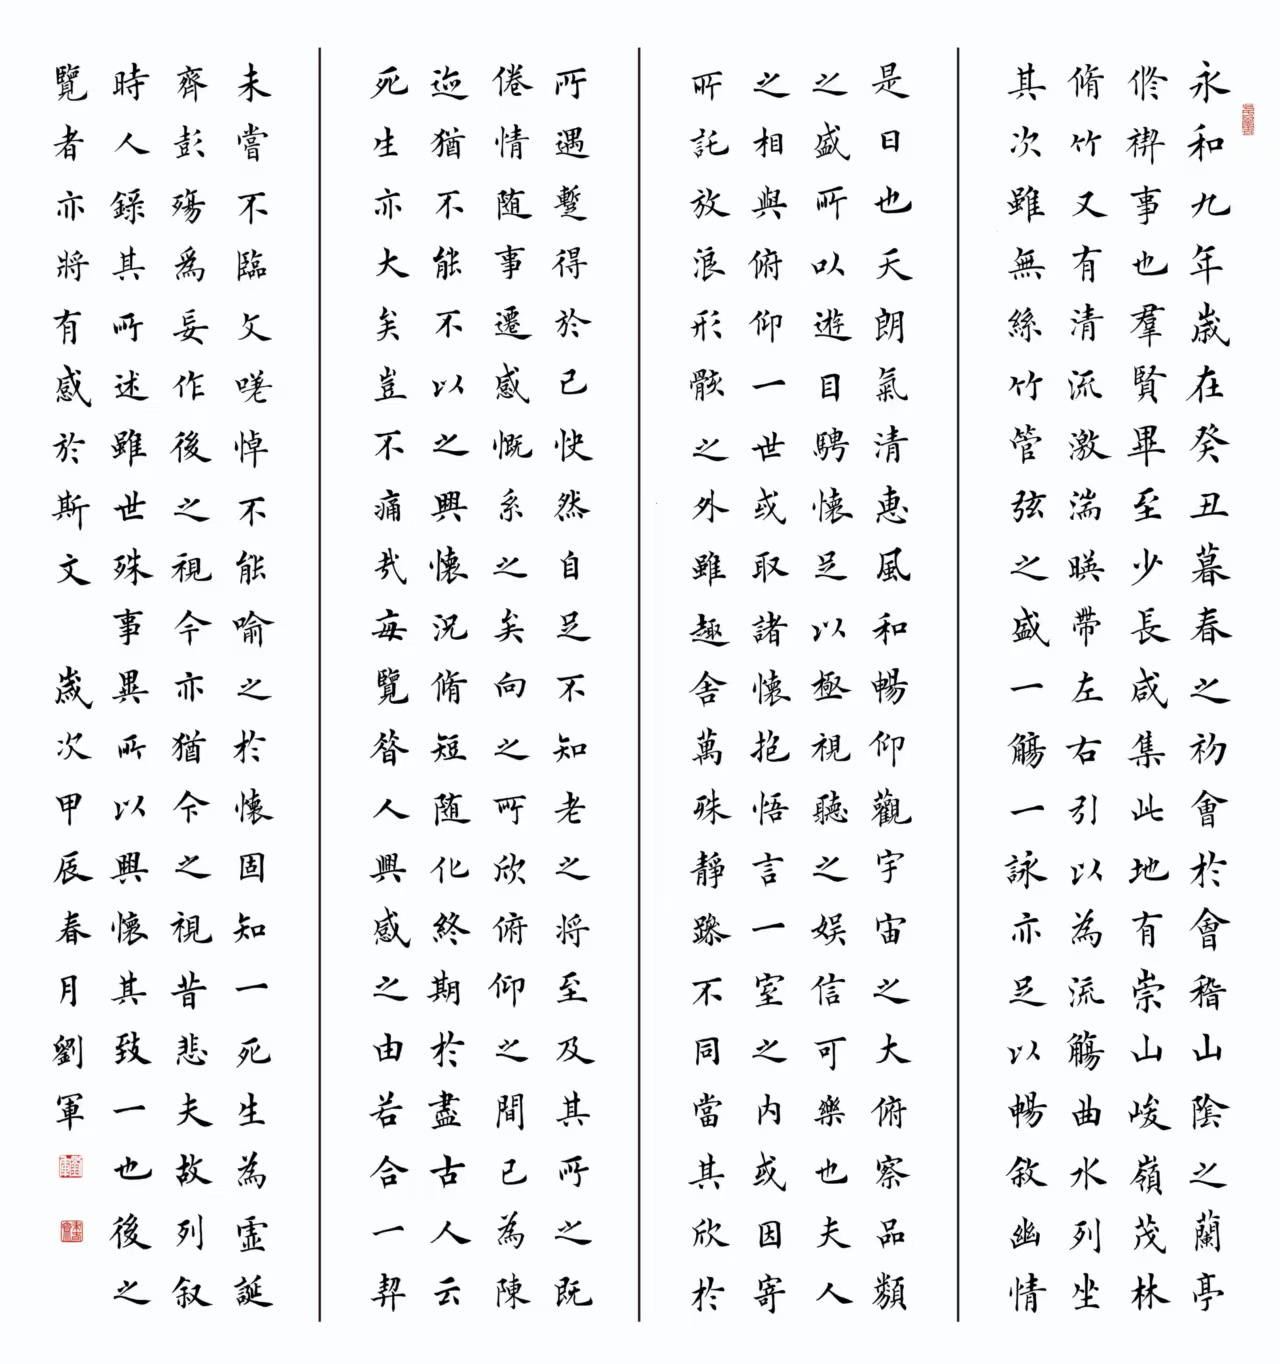 永和九年歲在癸丑暮春之初會於會稽山陰之蘭亭
修禊事也羣賢畢至少長咸集此地有崇山峻嶺茂林
脩竹又有清流激湍暎帶左右引以為流觴曲水列坐
其次雖無絲竹管弦之盛一觴一詠亦足以暢敘幽情
是日也天朗氣清惠風和暢仰觀宇宙之大俯察品類
之盛所以遊目騁懷足以極視聽之娛信可樂也夫人
之相與俯仰一世或取諸懷抱悟言一室之內或因寄
所託放浪形骸之外雖趣舍萬殊靜躁不同當其欣於
所遇蹔得於己快然自足不知老之將至及其所之既
倦情随事遷感慨系之矣向之所欣俯仰之間已為陳
迹猶不能不以之興懷況脩短随化終期於盡古人云
死生亦大矣豈不痛哉每覽昝人興感之由若合一契
未嘗不臨文嗟悼不能喻之於懷固知一死生為虛誕
齊彭殤為妄作後之視今亦猶今之視昔悲夫故列叙
時人錄其所述雖世殊事異所以興懷其致一也後之
覽者亦將有感於斯文 歲次甲辰春月劉軍